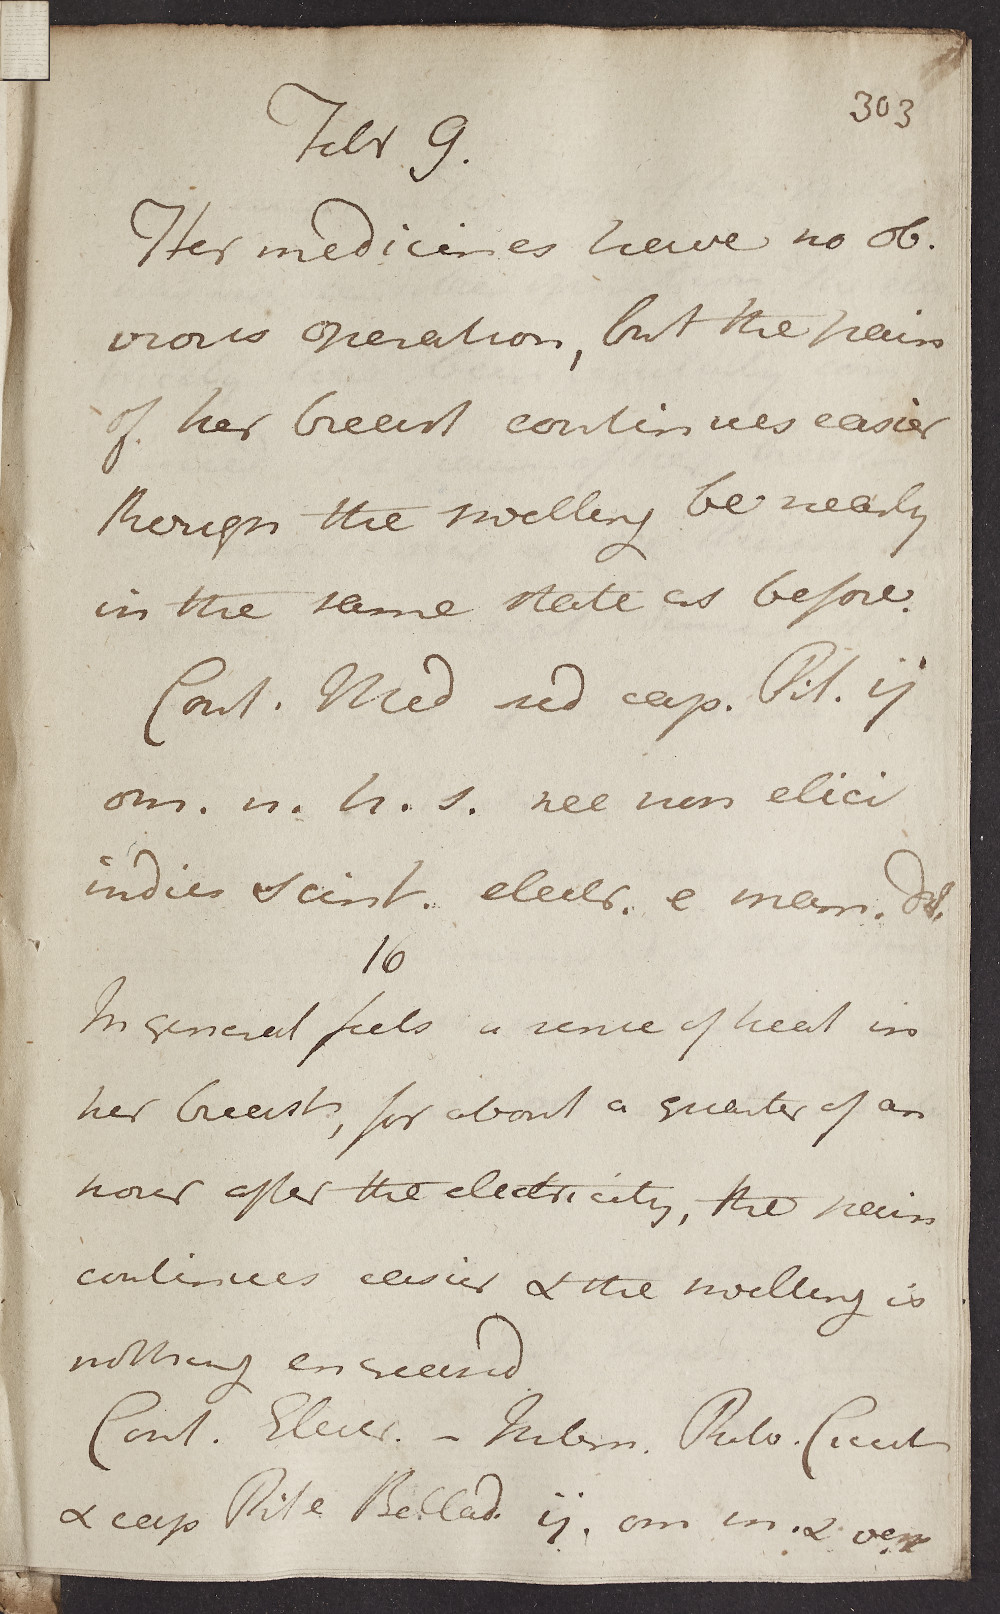 303
Febr 9.
Her medicines have no ob.
vious operation, but the pain
of her breast continues easier
though the swelling be nearly
in the same state as before.
Cont. Med sed cap. Pil. ij
om. n. h. s. nec non elici
indies Scint. electr. e mam.
16
In general feels a sense of heat in
her breasts, for about a quarter of an
hour after the electricity, the pain
continues easier & the swelling is
nothing encreased
Cont. Electr. – Pulv.
& cap Pil e Bellad. ij. om m. & ves